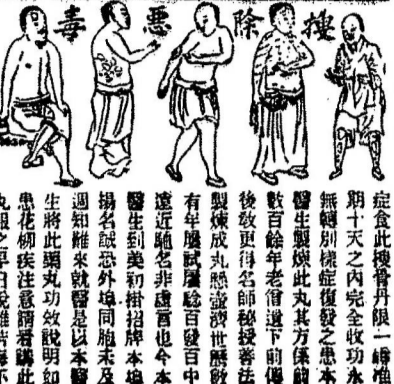 搜除惡毒
症食此搜骨丹限一禮准
期十天之內完全收功永
無轉別樣症復發之患本
醫生製煉此丸其方係前
數百餘年老僧遺下前傳
後敎更得名師秘授善法
製煉成丸懸壺濟世歷數
有年屢試屢驗百發百中
遠近馳名非虛言也今本
醫生到美初掛招牌本埠
揚名誠恐外埠同胞未及
週知難來就醫是以本醫
生將此丸功效說明如
患花柳疾注意請看講此